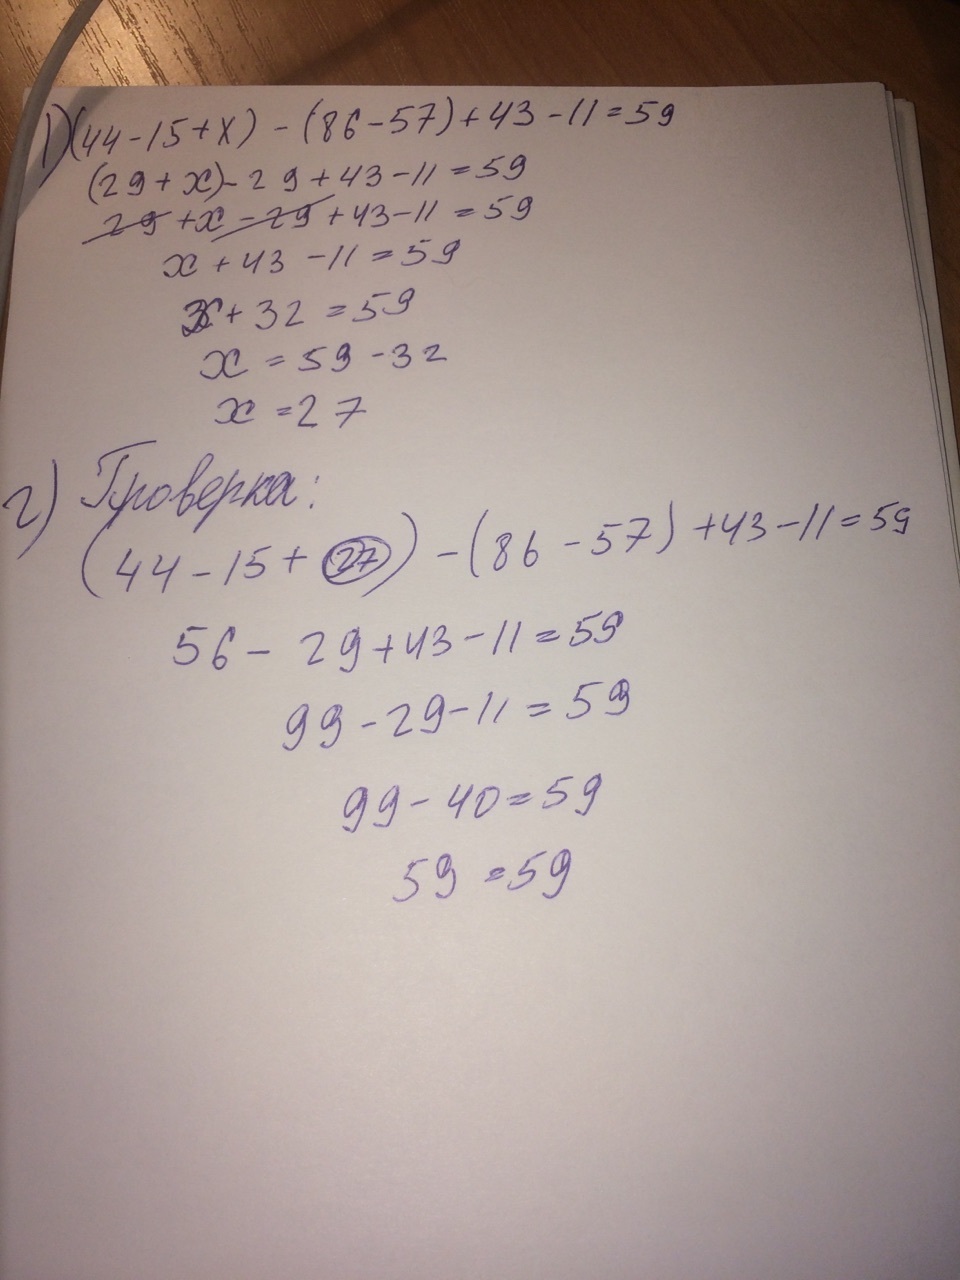 1) (44-15+x) - (86-57)+43-11=59
(29+x)-29+43-11=59
29+x-29+43-11=59
x+43-11=59
x+32=59
x=59-32
x=27
2) Проверка:
(44-15+27)-(86-57)+43-11=59
56-29+43-11=59
99-29-11=59
99-40=59
59=59